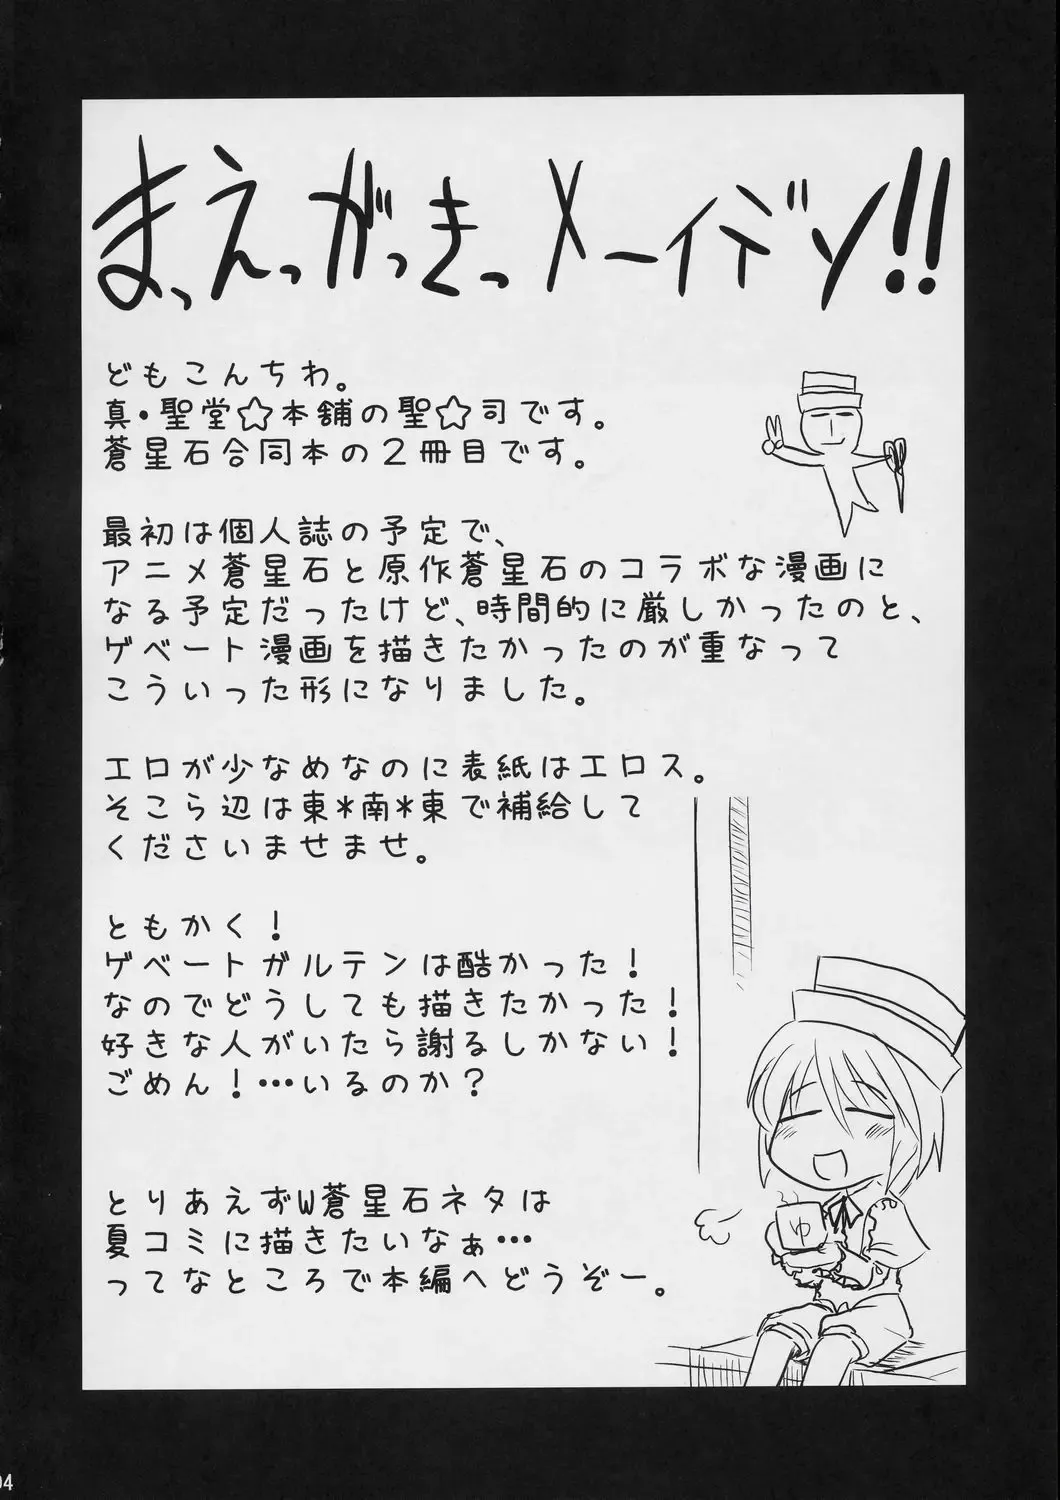 まっえっがっきっメーイデン!!
どもこんちわ。
真・聖堂☆本舗の聖☆司です。
蒼星石合同本の2冊目です。
最初は個人誌の予定で、
アニメ蒼星石と原作蒼星石のコラボな漫画に
なる予定だったけど、時間的に厳しかったのと、
ゲベート漫画を描きたかったのが重なって
こういった形になりました。
エロが少なめなのに表紙はエロス。
そこら辺は東*南*東で補給して
くださいませませ。
ともかく！
ゲベートガルテンは酷かった！
なのでどうしても描きたかった！
好きな人がいたら謝るしかない！
ごめん！…いるのか？
とりあえずW蒼星石ネタは
夏コミに描きたいなぁ…
ってなところで本編へどうぞー。
ゆ
04